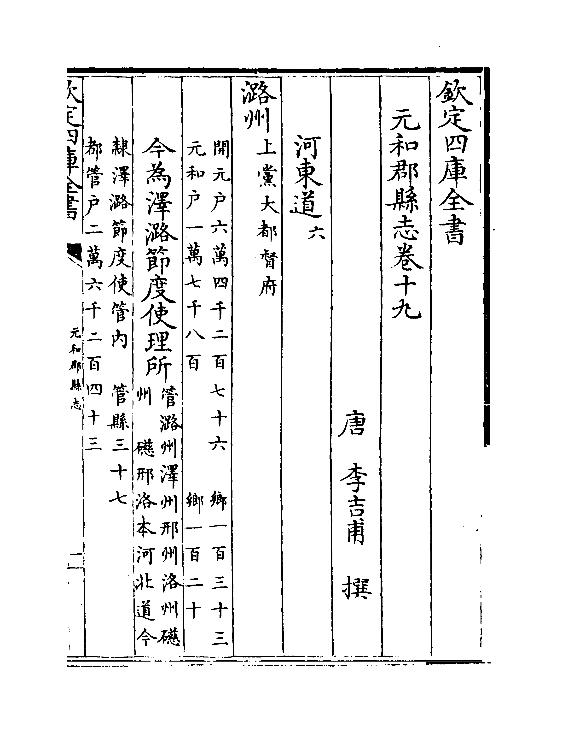 欽定四庫全書
元和郡縣志卷十九
唐 李吉甫 撰
河東道六
潞州上黨大都督府
開元户六萬四千二百七十六 鄉一百三十三
元和户一萬七千八百 鄉一百二十
今為澤潞節度使理所管潞州澤州邢州洺州磁
州 磁邢洺本河北道今
隸澤潞節度使管内 管縣三十七
都管户二萬六千二百四十三
欽定四庫全書
元和郡縣志
一